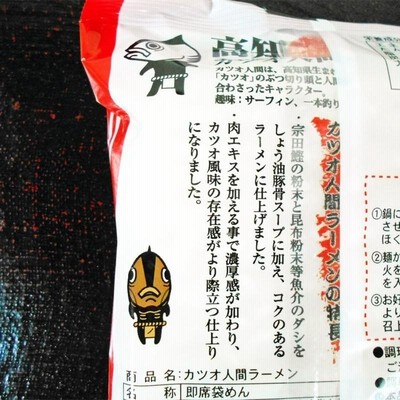 高知
カツオ人間は、高知県生ま
「カツオ」のぶつ切り頭と人
合わさったキャラクター。
趣味：サーフィン、一本釣り
カツオ人間ラーメンの特長
・宗田鰹の粉末と昆布粉末等魚介のダシを
しょう油豚骨スープに加え、コクのある
ラーメンに仕上げました。
・肉エキスを加える事で濃厚感が加わり、
カツオ風味の存在感がより際立つ仕上り
になりました。
①鍋に
させ
ほく
②麺か
火を
を入
③お好
より
召上
●調理
ご
商品名：カツオ人間ラーメン
名称 即席袋めん